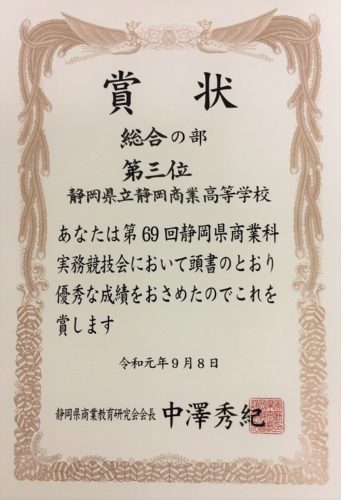 賞状
総合の部
第三位
静岡県立静岡商業高等学校
あなたは第69回静岡県商業科
実務競技会において頭書のとおり
優秀な成績をおさめたのでこれを
賞します
令和元年9月8日
静岡県商業教育研究会会長 中澤秀紀